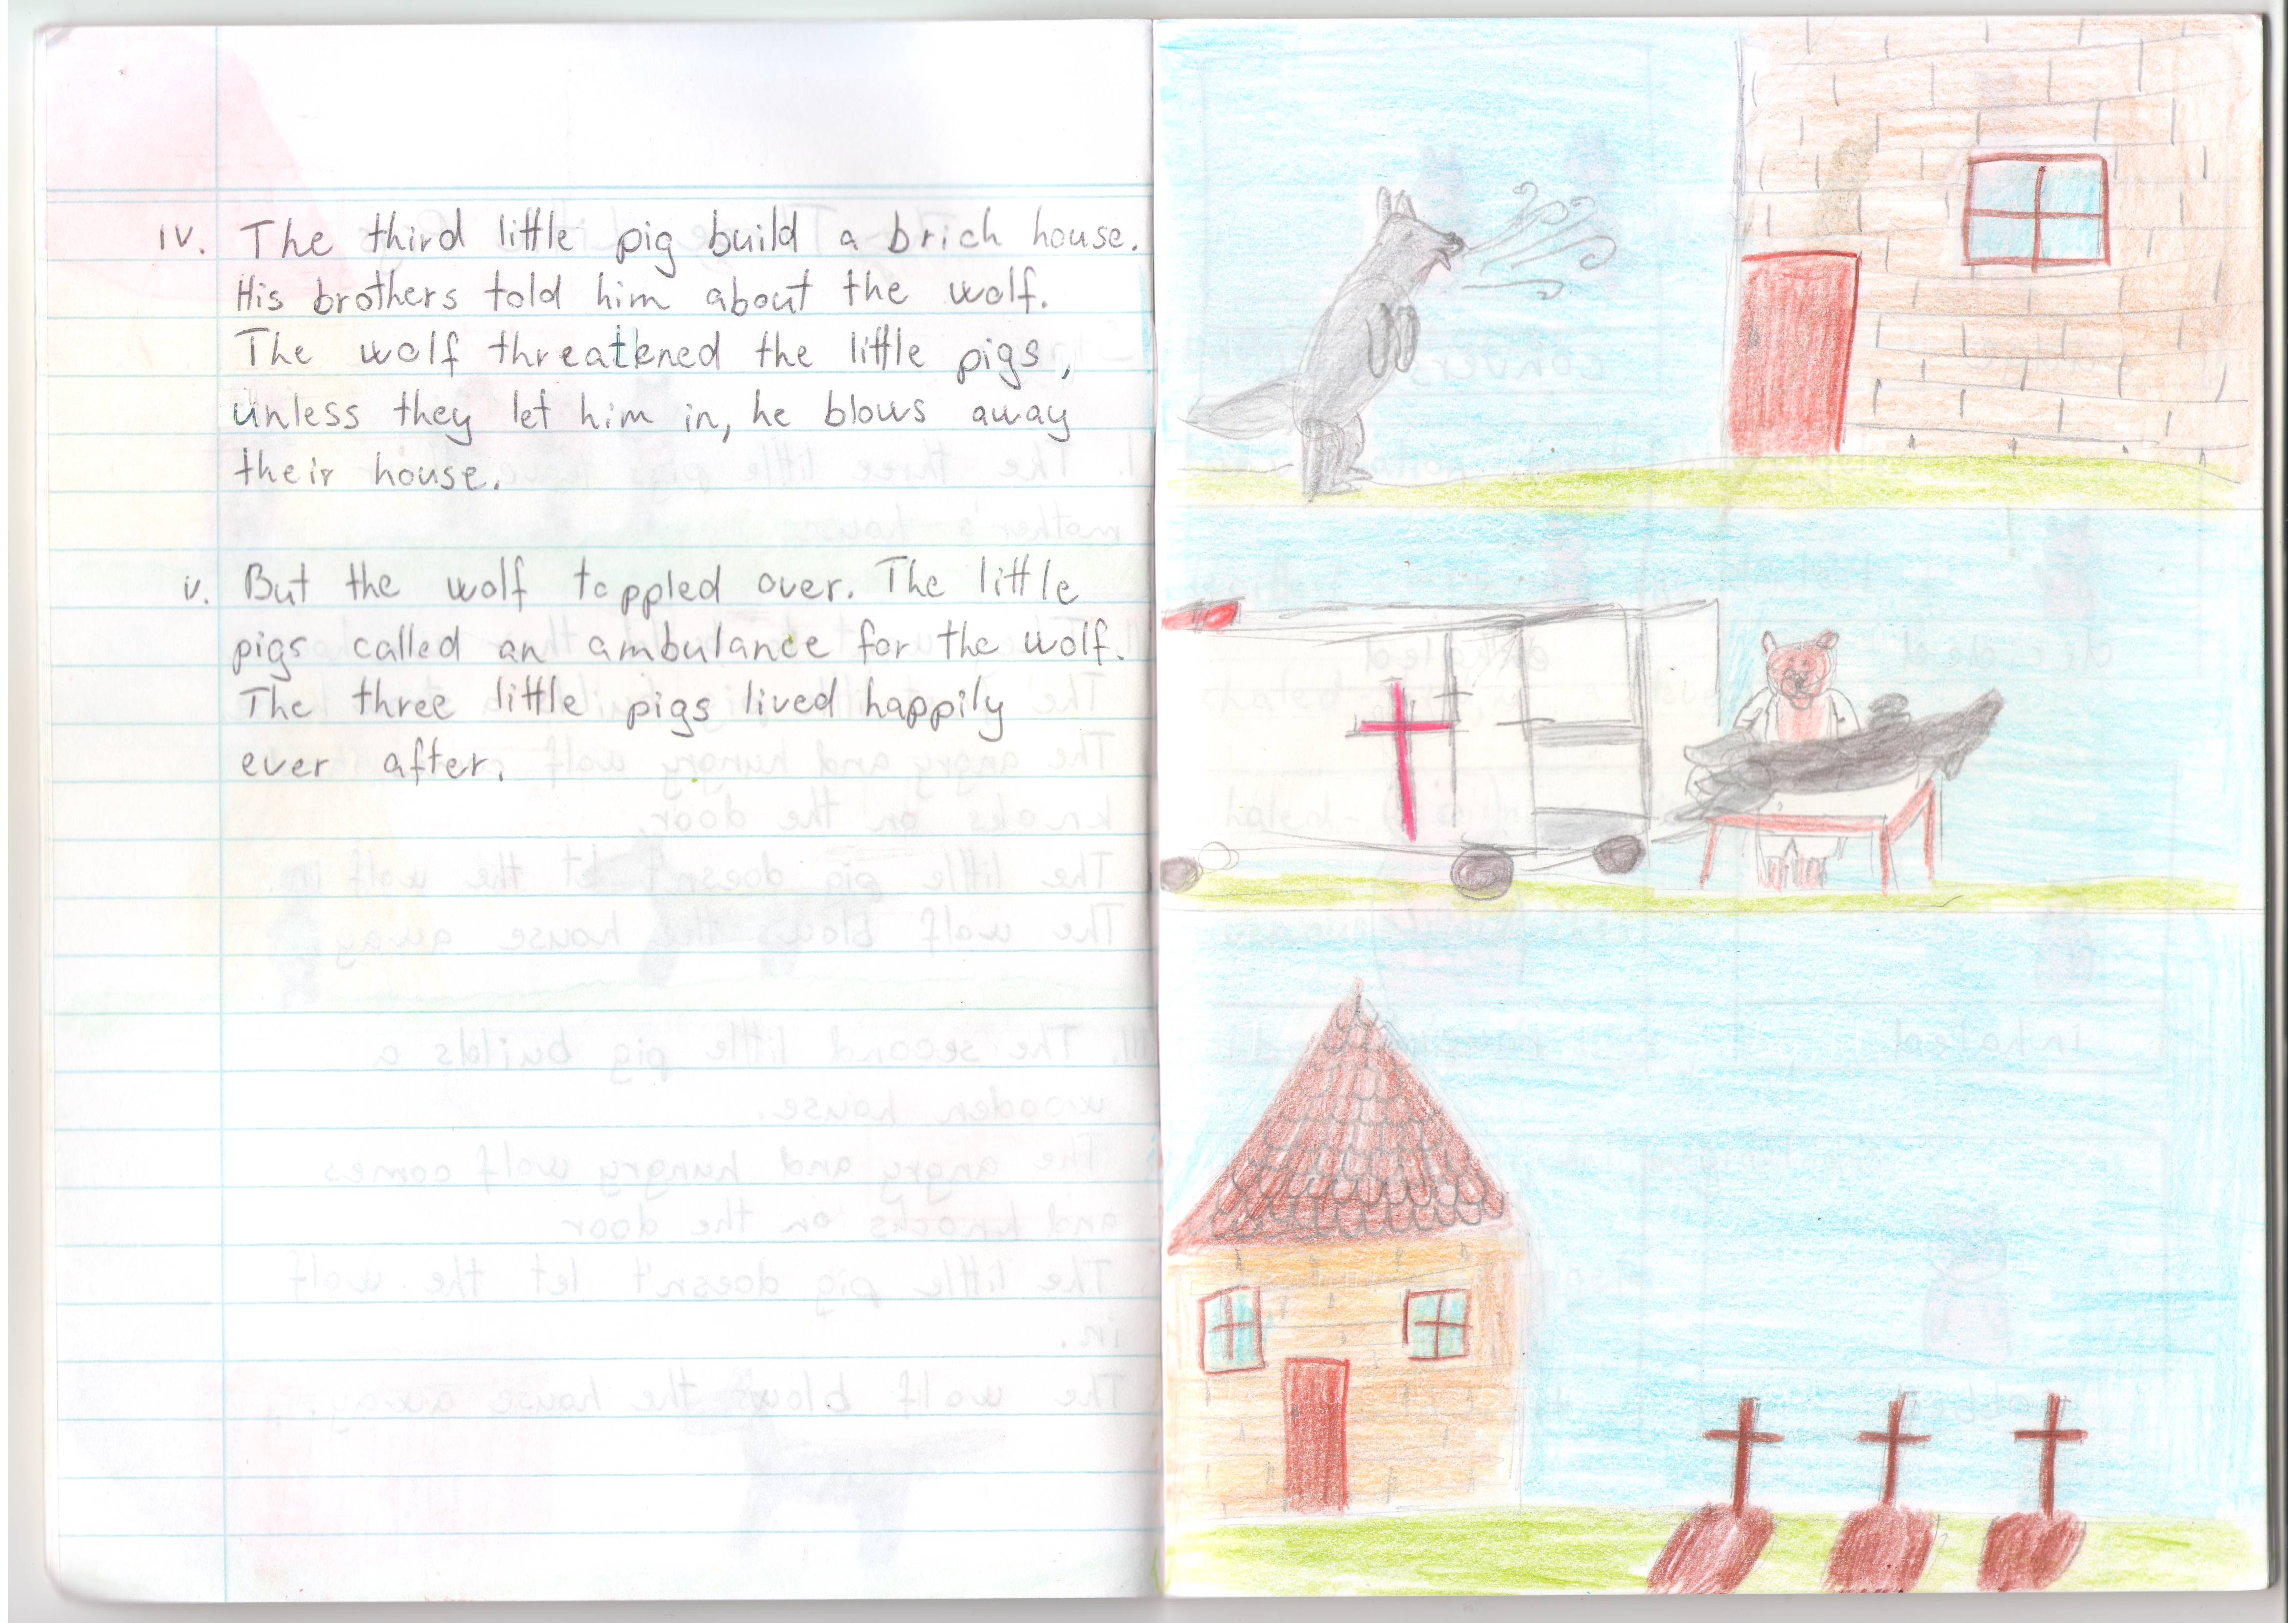 iv. The third little pig build a brich house.
His brothers told him about the wolf.
The wolf threatened the little pigs,
unless they let him in, he blows away
their house.
v. But the wolf toppled over. The little
pigs called an ambulance for the wolf.
The three little pigs lived happily
ever after.